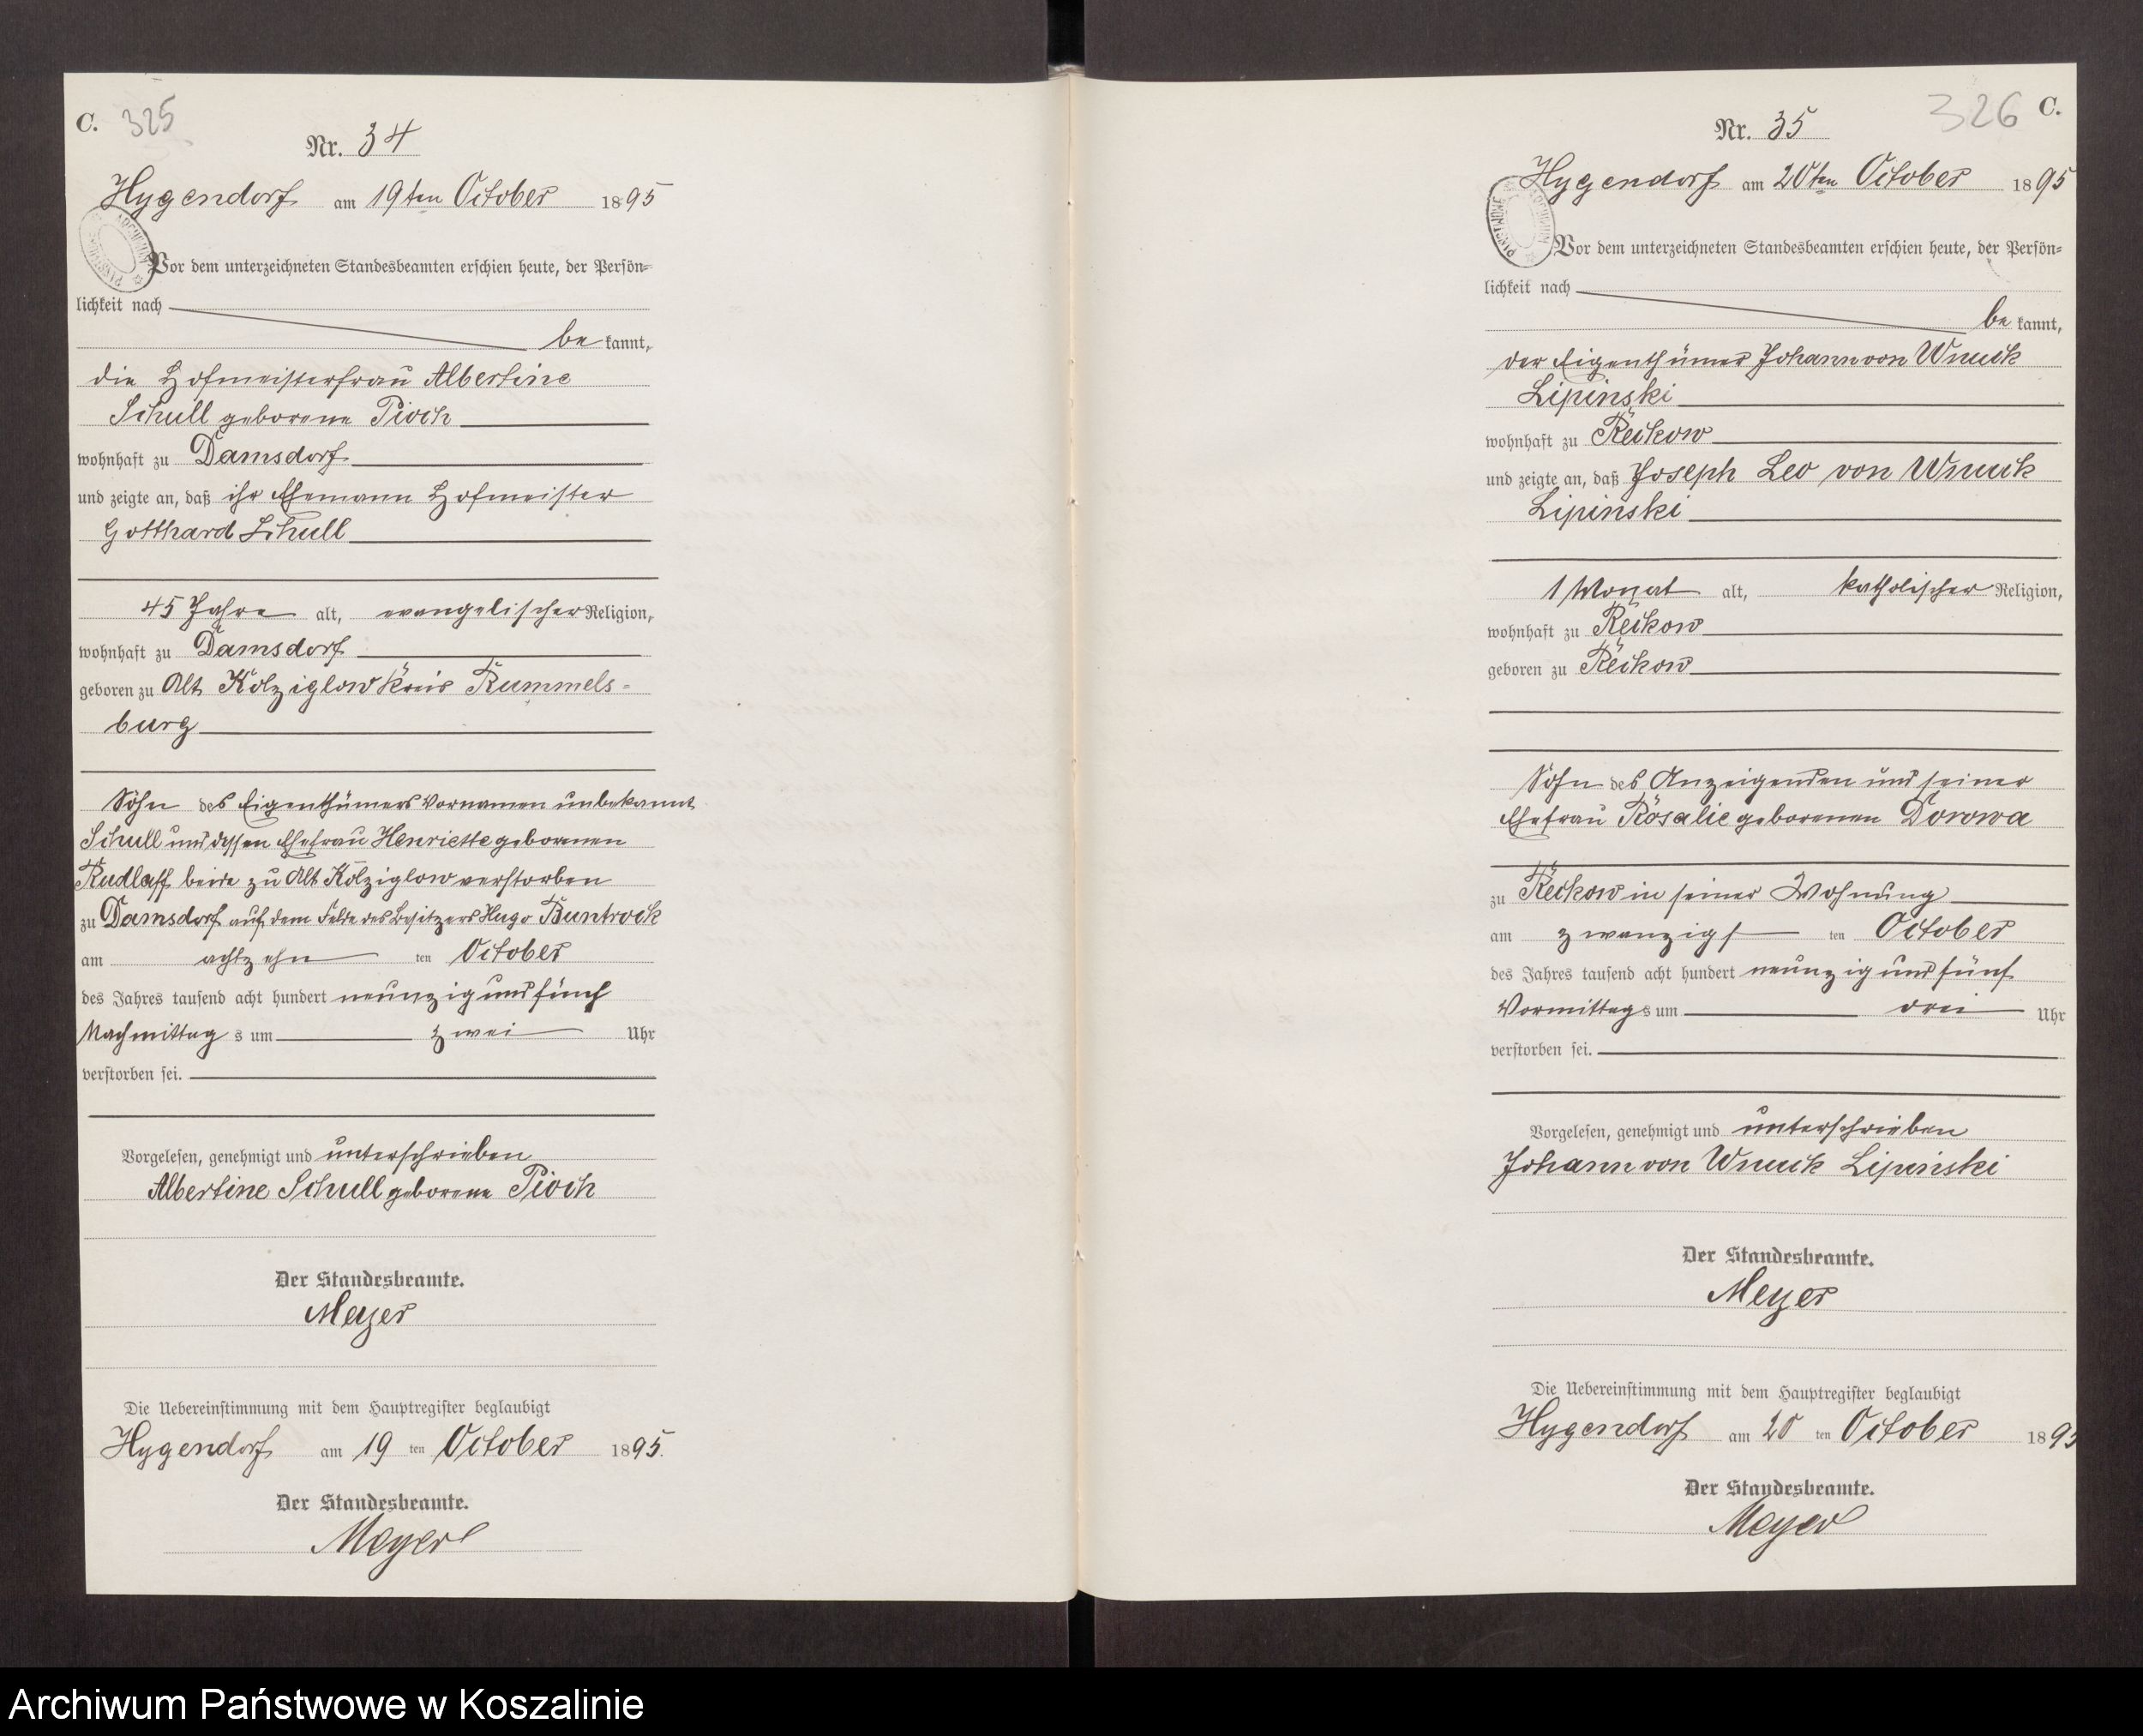 C. 325
Nr. 34
Hygendorf am 19ten October 1895
Vor dem unterzeichneten Standesbeamten erschien heute, der Persön-
lichkeit nach
bekannt,
die Hofmeisterfrau Albertine
Schull geborene Pioch
wohnhaft zu Damsdorf
und zeigte an, daß ihr Ehemann Hofmeister
Gotthard Schull
45 Jahre alt, evangelischer Religion,
wohnhaft zu Damsdorf
geboren zu Alt Kolziglow Kreis Rummels-
burg
Sohn des Eigenthümers Vornamen unbekannt
Schull und dessen Ehefrau Henriette gebornen
Rudlaff beide zu Alt Kolziglow verstorben
zu Damsdorf auf dem Felde des Besitzers Hugo Buntrock
am achtzehnten October
des Jahres tausend acht hundert neunzig und fünf
Nachmittags um zwei Uhr
verstorben sei.
Vorgelesen, genehmigt und unterschrieben
Albertine Schull geborene Pioch
Der Standesbeamte.
Meyer
Die Uebereinstimmung mit dem Hauptregister beglaubigt
Hygendorf am 19ten October 1895.
Der Standesbeamte.
Meyer
326 C.
Nr. 35
Hygendorf am 20ten October 1895
Vor dem unterzeichneten Standesbeamten erschien heute, der Persön-
lichkeit nach
bekannt,
der Eigenthümer Johann von Wnuck
Lipinski
wohnhaft zu Reckow
und zeigte an, daß Joseph Leo von Wnuck
Lipinski
1 Monat alt, katholischer Religion,
wohnhaft zu Reckow
geboren zu Reckow
Sohn des Anzeigenden und seiner
Ehefrau Rosalie geborenen Dorowa
zu Reckow in seiner Wohnung
am zwanzigsten October
des Jahres tausend acht hundert neunzig und fünf
Vormittags um drei Uhr
verstorben sei.
Vorgelesen, genehmigt und unterschrieben
Johann von Wnuck Lipinski
Der Standesbeamte.
Meyer
Die Uebereinstimmung mit dem Hauptregister beglaubigt
Hygendorf am 20ten October 1895
Der Standesbeamte.
Meyer
Archiwum Państwowe w Koszalinie